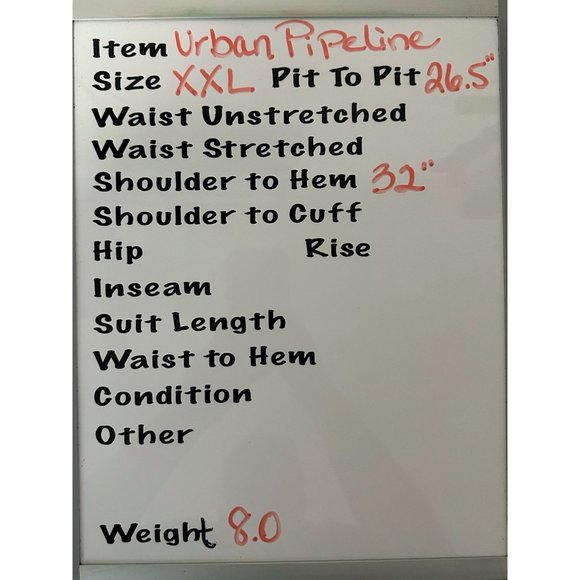 Item Urban Pipeline
Size XXL Pit To Pit 26.5"
Waist Unstretched
Waist Stretched
Shoulder to Hem 32"
Shoulder to Cuff
Hip Rise
Inseam
Suit Length
Waist to Hem
Condition
Other
Weight 8.0